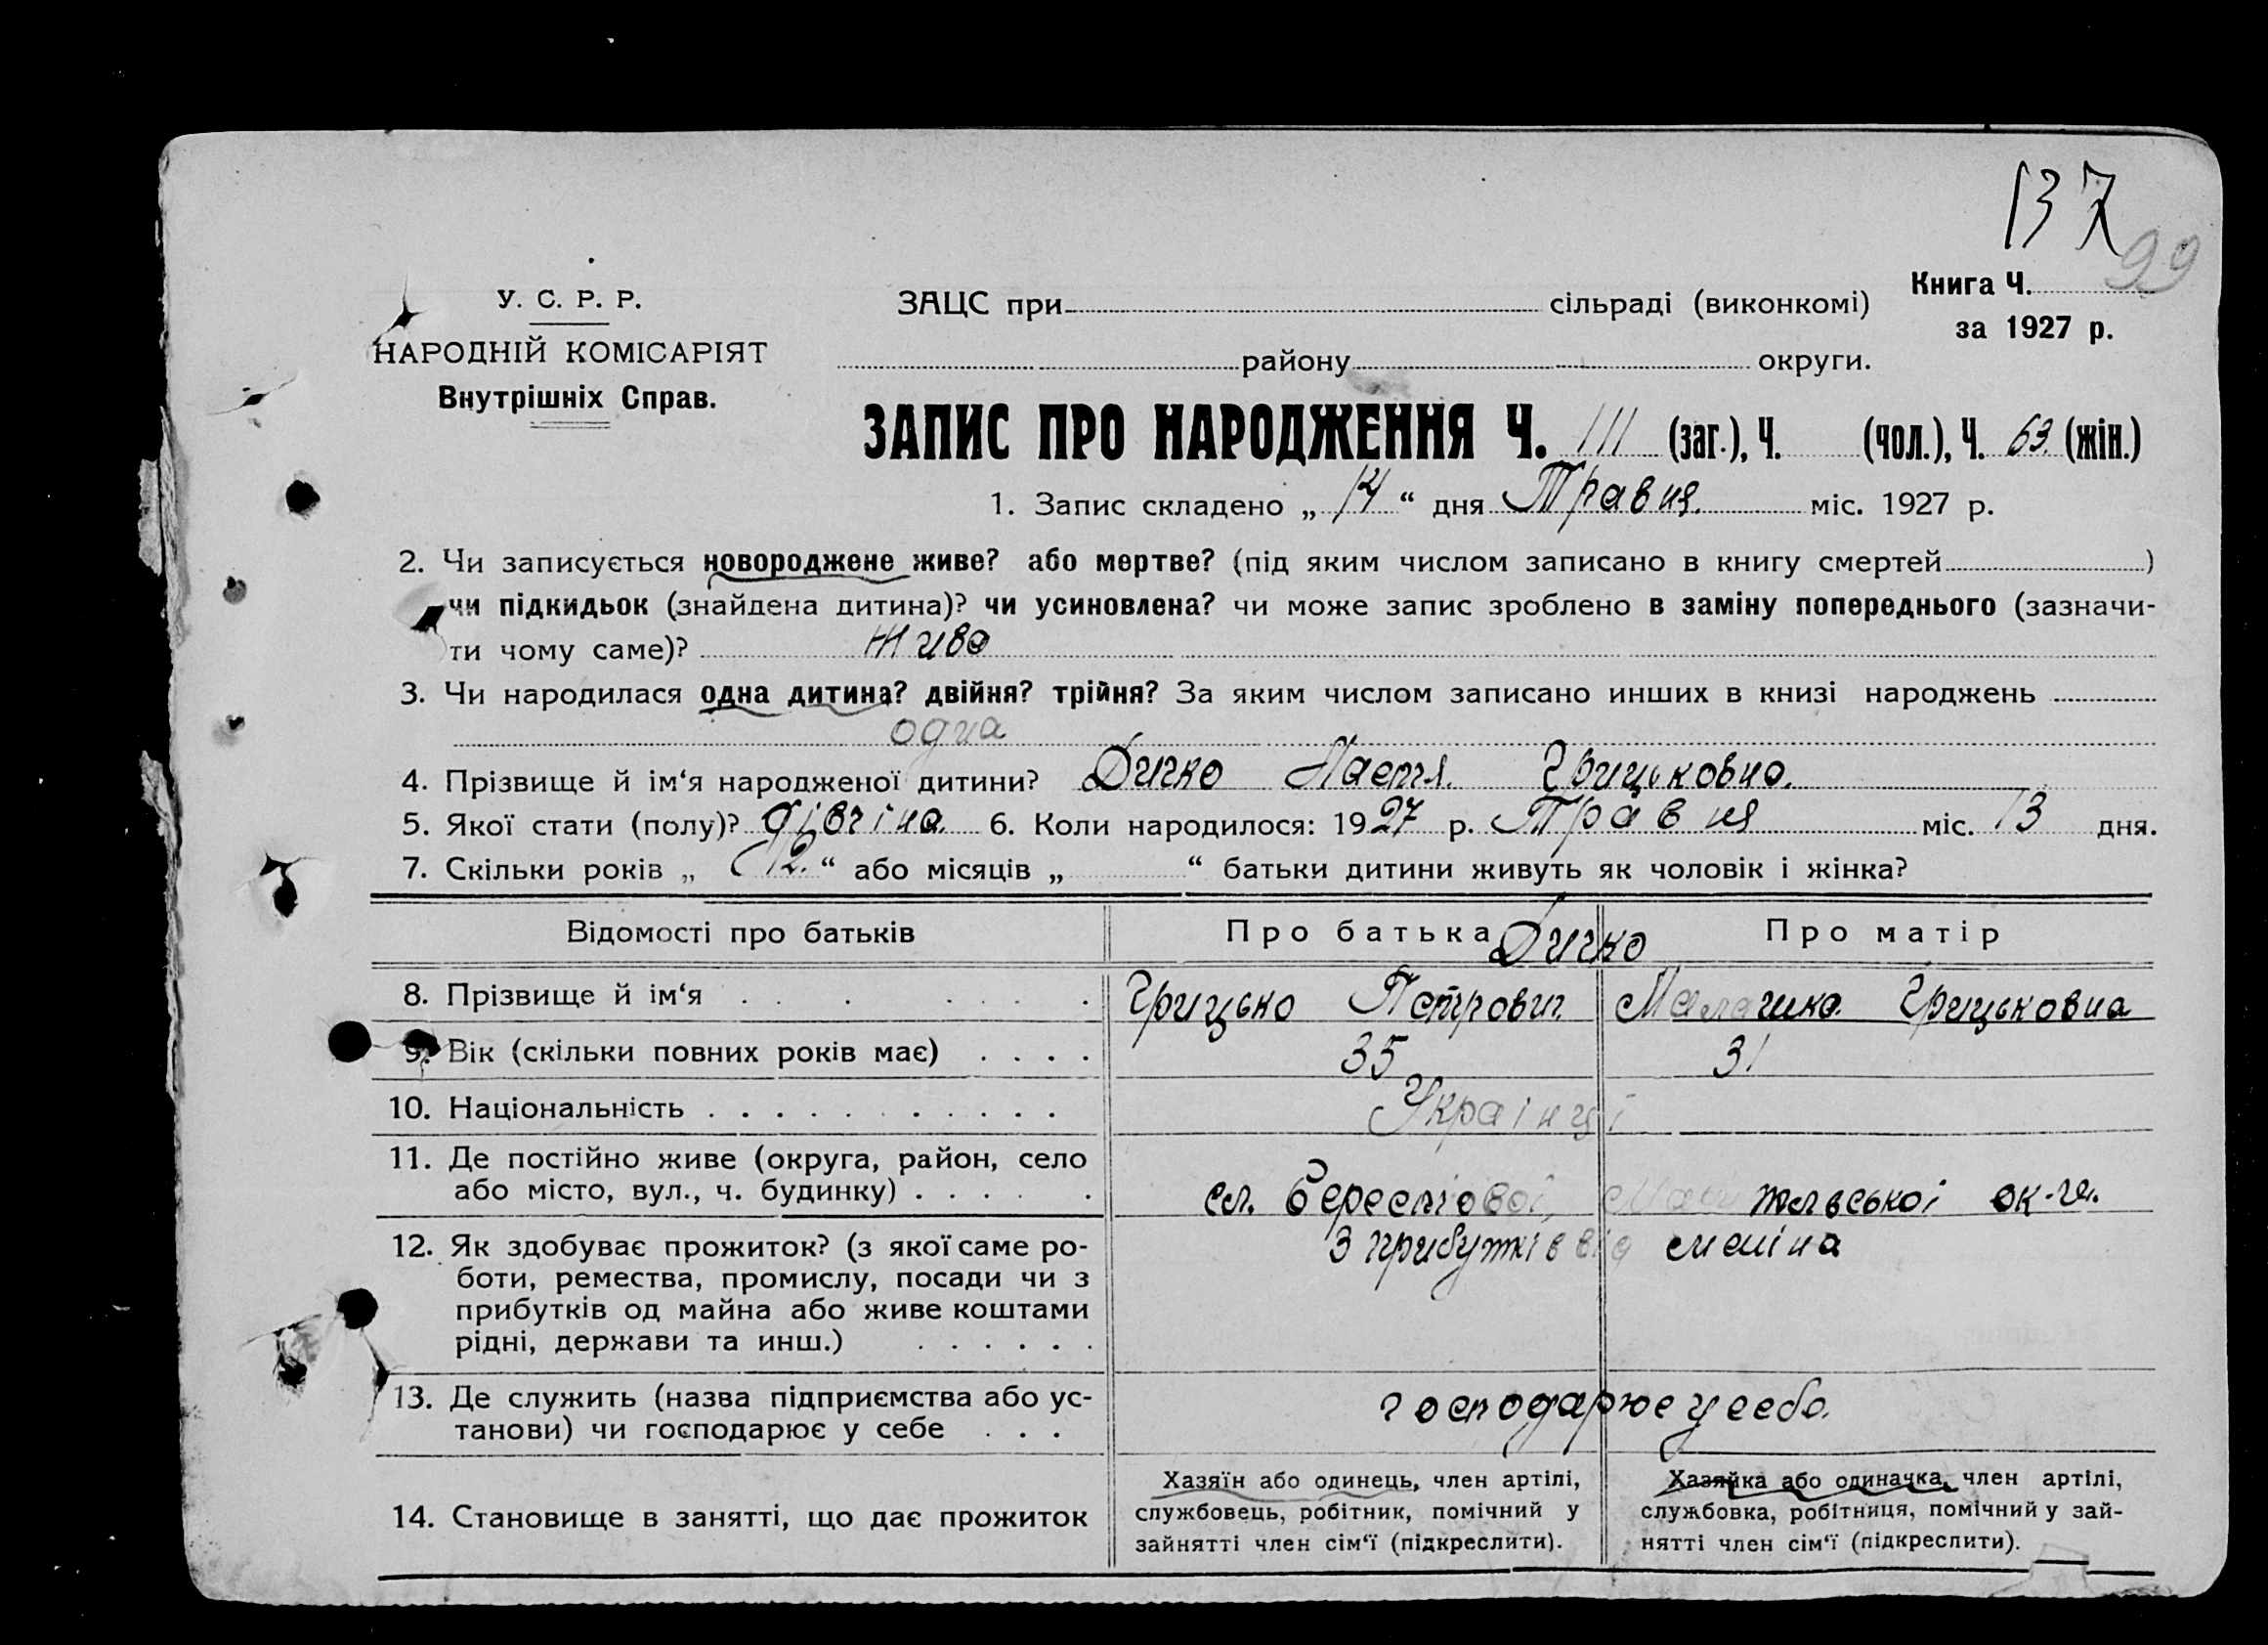 137
99
У. С. Р. Р.
НАРОДНІЙ КОМІСАРІЯТ
Внутрішніх Справ.
ЗАЦС при сільраді (виконкомі)
району округи.
Книга Ч.
за 1927 р.
ЗАПИС ПРО НАРОДЖЕННЯ Ч. 111 (заг.), Ч. (чол.), Ч. 63. (жін.)
1. Запис складено „ 14 “ дня Травня. міс. 1927 р.
2. Чи записується новороджене живе? або мертве? (під яким числом записано в книгу смертей )
чи підкидьок (знайдена дитина)? чи усиновлена? чи може запис зроблено в заміну попереднього (зазначи-
ти чому саме)? живе
3. Чи народилася одна дитина? двійня? трійня? За яким числом записано инших в книзі народжень
одна
4. Прізвище й ім‘я народженої дитини? Дичко Настя. Грицьковна.
5. Якої стати (полу)? дівчіна. 6. Коли народилося: 1927 р. Травня міс. 13 дня.
7. Скільки років „ 12. “ або місяців „ “ батьки дитини живуть як чоловік і жінка?
Відомості про батьків Про батька Дичко Про матір
8. Прізвище й ім‘я Грицько Петрович. Малашка Грицьковна
9. Вік (скільки повних років має) 35 31
10. Національність Українці
11. Де постійно живе (округа, район, село
або місто, вул., ч. будинку) сл. Берестової, ок-ги.
12. Як здобуває прожиток? (з якої саме ро- З прибутків від
боти, ремества, промислу, посади чи з
прибутків од майна або живе коштами
рідні, держави та инш.)
13. Де служить (назва підприємства або ус-
танови) чи господарює у себе господарює у себе.
14. Становище в занятті, що дає прожиток
Хазяїн або одинець, член артілі,
службовець, робітник, помічний у
зайнятті член сім‘ї (підкреслити).
Хазяйка або одиначка, член артілі,
службовка, робітниця, помічний у зай-
нятті член сім‘ї (підкреслити).